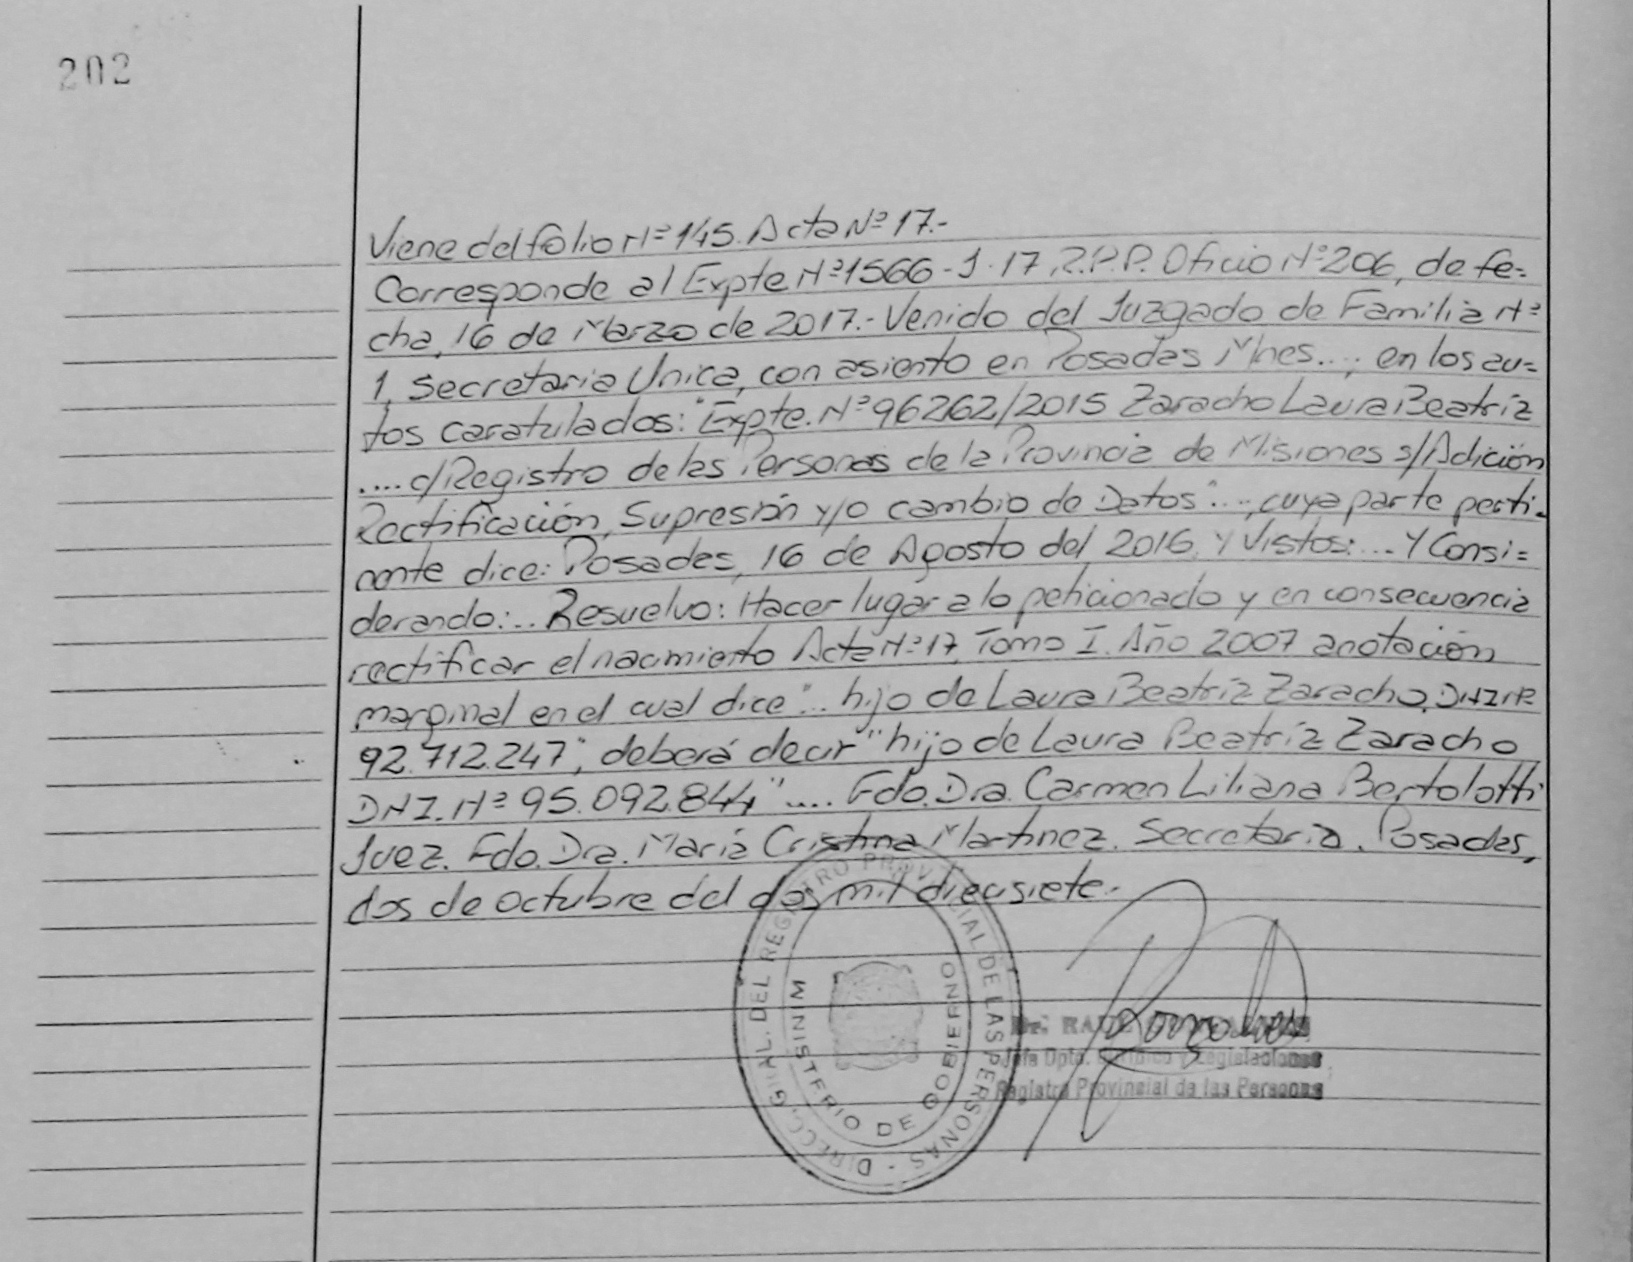 202
Viene del folio Nº 145. Acta Nº 17.-
Corresponde al Expte Nº 1566-J-17, R.P.P. Oficio Nº 206, de fe=
cha, 16 de Marzo de 2017.- Venido del Juzgado de Familia Nº
1, Secretaria Unica, con asiento en Posadas Mnes...., en los au=
tos caratulados: "Expte. Nº 96262/2015 Zaracho Laura Beatriz
.... c/Registro de las Personas de la Provincia de Misiones s/Adición
Rectificación, Supresión y/o cambio de Datos"..., cuya parte perti-
nente dice: Posadas, 16 de Agosto del 2016, Y Vistos:... Y Consi=
derando:... Resuelvo: Hacer lugar a lo peticionado y en consecuencia
rectificar el nacimiento Acta Nº 17, Tomo I. Año 2007 anotación
marginal en el cual dice "... hijo de Laura Beatriz Zaracho, DNI Nº
92.712.247", deberá decir "hijo de Laura Beatríz Zaracho
DNI. Nº 95.092.844".... Fdo. Dra. Carmen Liliana Bertolotti
Juez. Fdo. Dra. María Cristina Martinez. Secretaria. Posadas,
dos de octubre del dos mil diecisiete.-
DIRECC. GRAL. DEL REGISTRO PROVINCIAL DE LAS PERSONAS -
MINISTERIO DE GOBIERNO
Dr. RAUL
Jefe Dpto. Jurídico y Legislaciones
Registro Provincial de las Personas